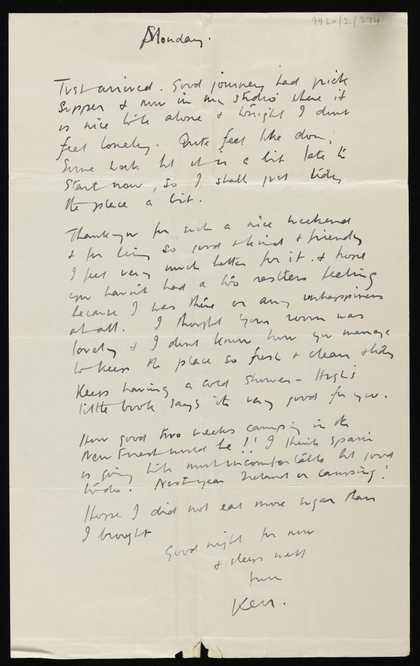 9920/2/294
Monday.
Just arrived. Good journey had quick
supper & now in my studio where it
is nice to be alone & tonight I dont
feel lonely. Quite feel like doing
some work but it is a bit late to
start now, so I shall just tidy
the place a bit.
Thankyou for such a nice weekend
& for being so good & kind & friendly
I feel very much better for it & hope
you havnt had a too restless feeling
because I was there or any unhappiness
at all. I thought your room was
lovely & I dont know how you manage
to keep the place so fresh & clean & tidy
Keep having a cold shower –
little book says its very good for you.
How good two weeks camping in the
New Forest would be!! I think Spain
is going to be most uncomfortable but good
Next year Ireland or camping!
Hope I did not eat more sugar than
I brought
Good night for now
& sleep well
from
Ken.